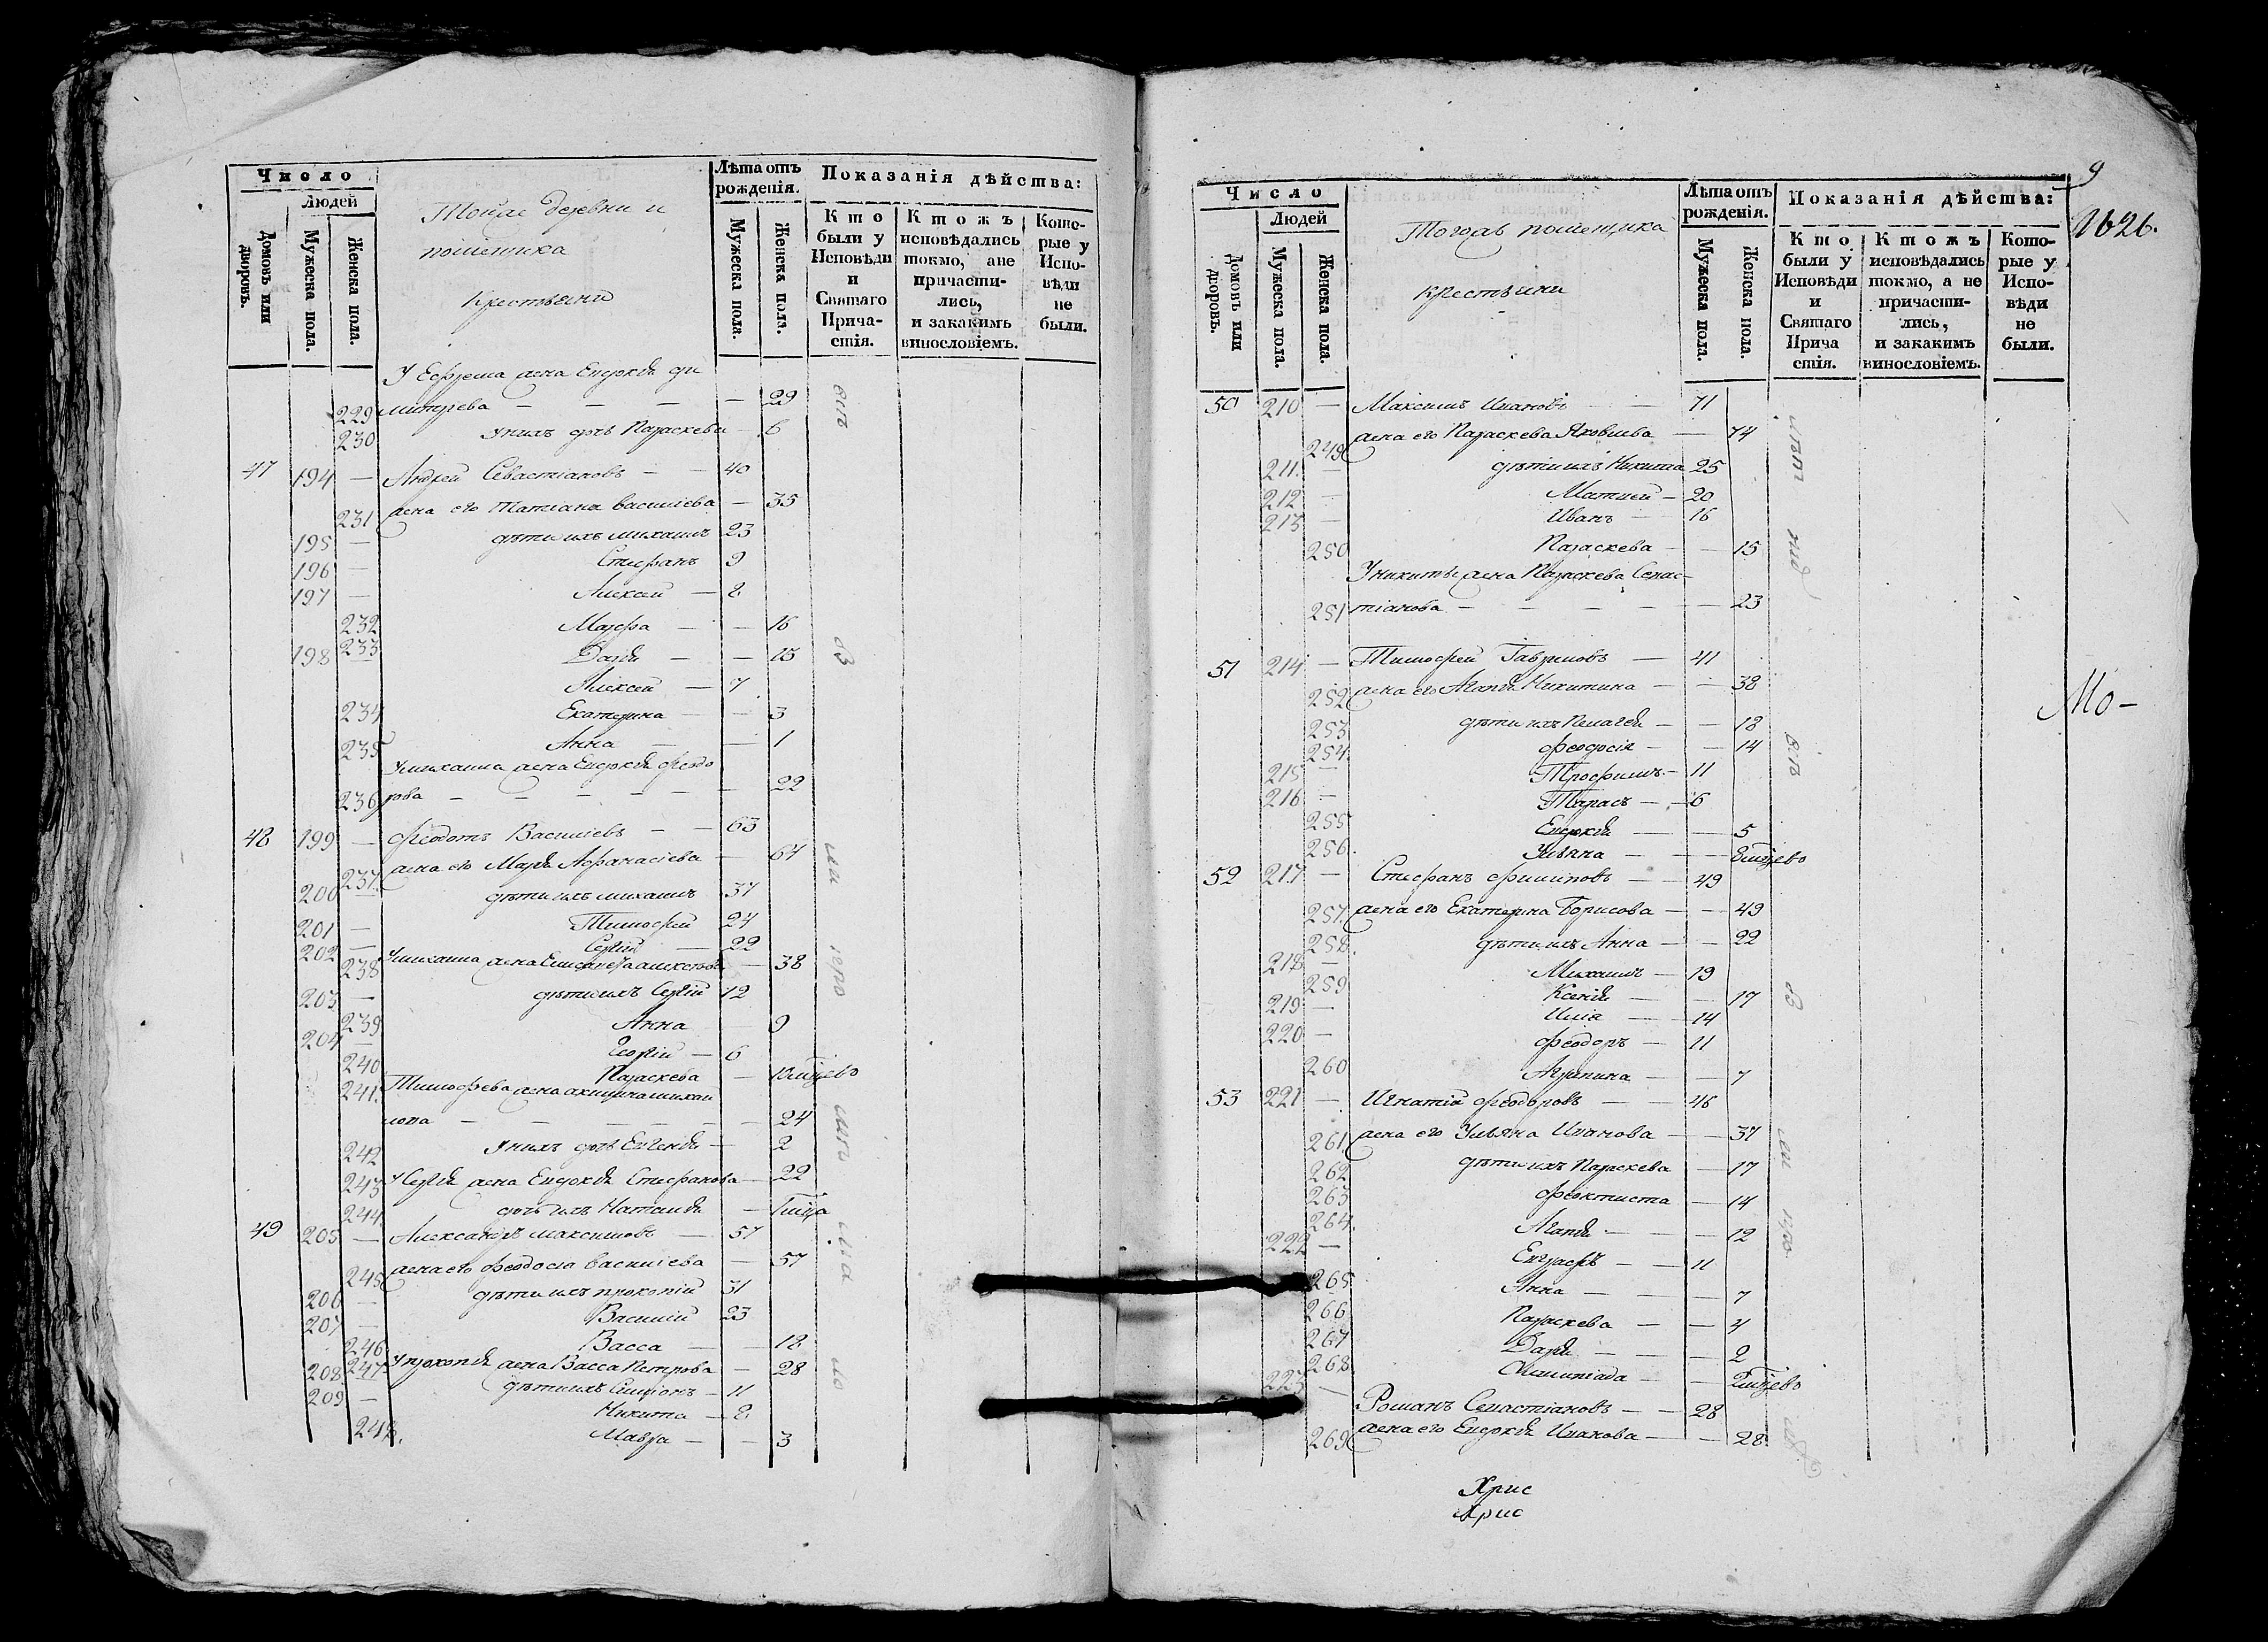 Число
Людей
Домовъ или дворовъ.
Мужеска пола.
Женска пола.
Тойже деревни и
помещика
Крестьяни
Лѣта отъ рожденія.
Мужеска пола.
Женска пола.
Показанія дѣйства:
Кто были у Исповѣди и Святаго Причастія.
Ктожъ исповѣдались токмо, а не причастились, и закакимъ винословіемъ.
Которые у Исповѣди не были.
У Ефрема жена Евдокія ди
229 митрева — 29
230 у нихъ дочь Параскева — 6
47 194 — Андрей Севастіановъ — 40
231 жена его Татіана Василіева — 35
195 — дѣти ихъ Михаилъ 23
196 — Стефанъ 9
197 — Алексей — 8
232 Марфа — 16
198 233 Дарія — 13
Алексей — 7
234 Екатерина — 3
235 Анна — 1
У Михаила жена Евдокія Феодо
236 рова — 22
48 199 — Феодотъ Василіевъ — 63
237 жена его Марія Афанасіева — 64
200 — дѣти ихъ Михаилъ 37
201 — Тимофей 24
202 — Сергій — 22
238 У Михаила жена Елисавета Алексѣева — 38
203 — дѣти ихъ Сергій 12
239 Анна 9
204 — Георгій — 6
240 Параскева — полугодо
241 Тимофея жена Акилина Михаи
лова — 24
242 У нихъ дочь Евгенія — 2
243 У Сергія жена Евдокія Стефанова — 22
244 дочь ихъ Наталія —
49 205 — Александръ Максимовъ — 57
245 жена его Феодосіа Василіева — 57
206 — дѣти ихъ Прокопій 31
207 — Василій 23
246 Васса — 18
247 У Прокопія жена Васса Петрова — 28
208 дѣти ихъ Симеонъ — 11
209 — Никита — 8
248. Мавра — 3
9
1626.
Число
Людей
Домовъ или дворовъ.
Мужеска пола.
Женска пола.
Тогожъ помещика
крестьяни
Лѣта отъ рожденія.
Мужеска пола.
Женска пола.
Показанія дѣйства:
Кто были у Исповѣди и Святаго Причастія.
Ктожъ исповѣдались токмо, а не причастились, и закакимъ винословіемъ.
Которые у Исповѣди не были.
50 210 — Максимъ Ивановъ — 71
249 жена его Параскева Яковлева — 74
211 — дѣти ихъ Никита 25
212 — Матвей — 20
213 — Иванъ — 16
250 Параскева — 15
У Никиты жена Параскева Севас-
251 тіанова — 23
51 214 — Тимофей Гавриловъ — 41
252 жена его Агапія Никитина — 38
253 дѣти ихъ Пелагея — 18
254 Феодосія — 14
215 — Трофимъ — 11
216 — Тарасъ — 6
255 Евдокія — 5
256 Ульяна —
52 217 — Стефанъ Филиповъ — 49
257 жена его Екатерина Борисова — 49
258 дѣти ихъ Анна — 22
218 — Михаилъ — 19
259 Ксенія — 17
219 — Иліа — 14
220 — Феодоръ — 11
260 Агрипина — 7
53 221 — Игнатій Феодоровъ — 46
261 жена его Ульяна Иванова — 37
262 дѣти ихъ Параскева — 17
263 Феоктиста — 14
264 Агапія — 12
222 — Евграфъ — 11
265 Анна — 7
266 Параскева — 4
267 Дарія — 2
268 Олимпіада —
223 — Романъ Севастіановъ — 28
269 жена его Евдокія Иванова — 28
Мо-
Хрис
Хрис